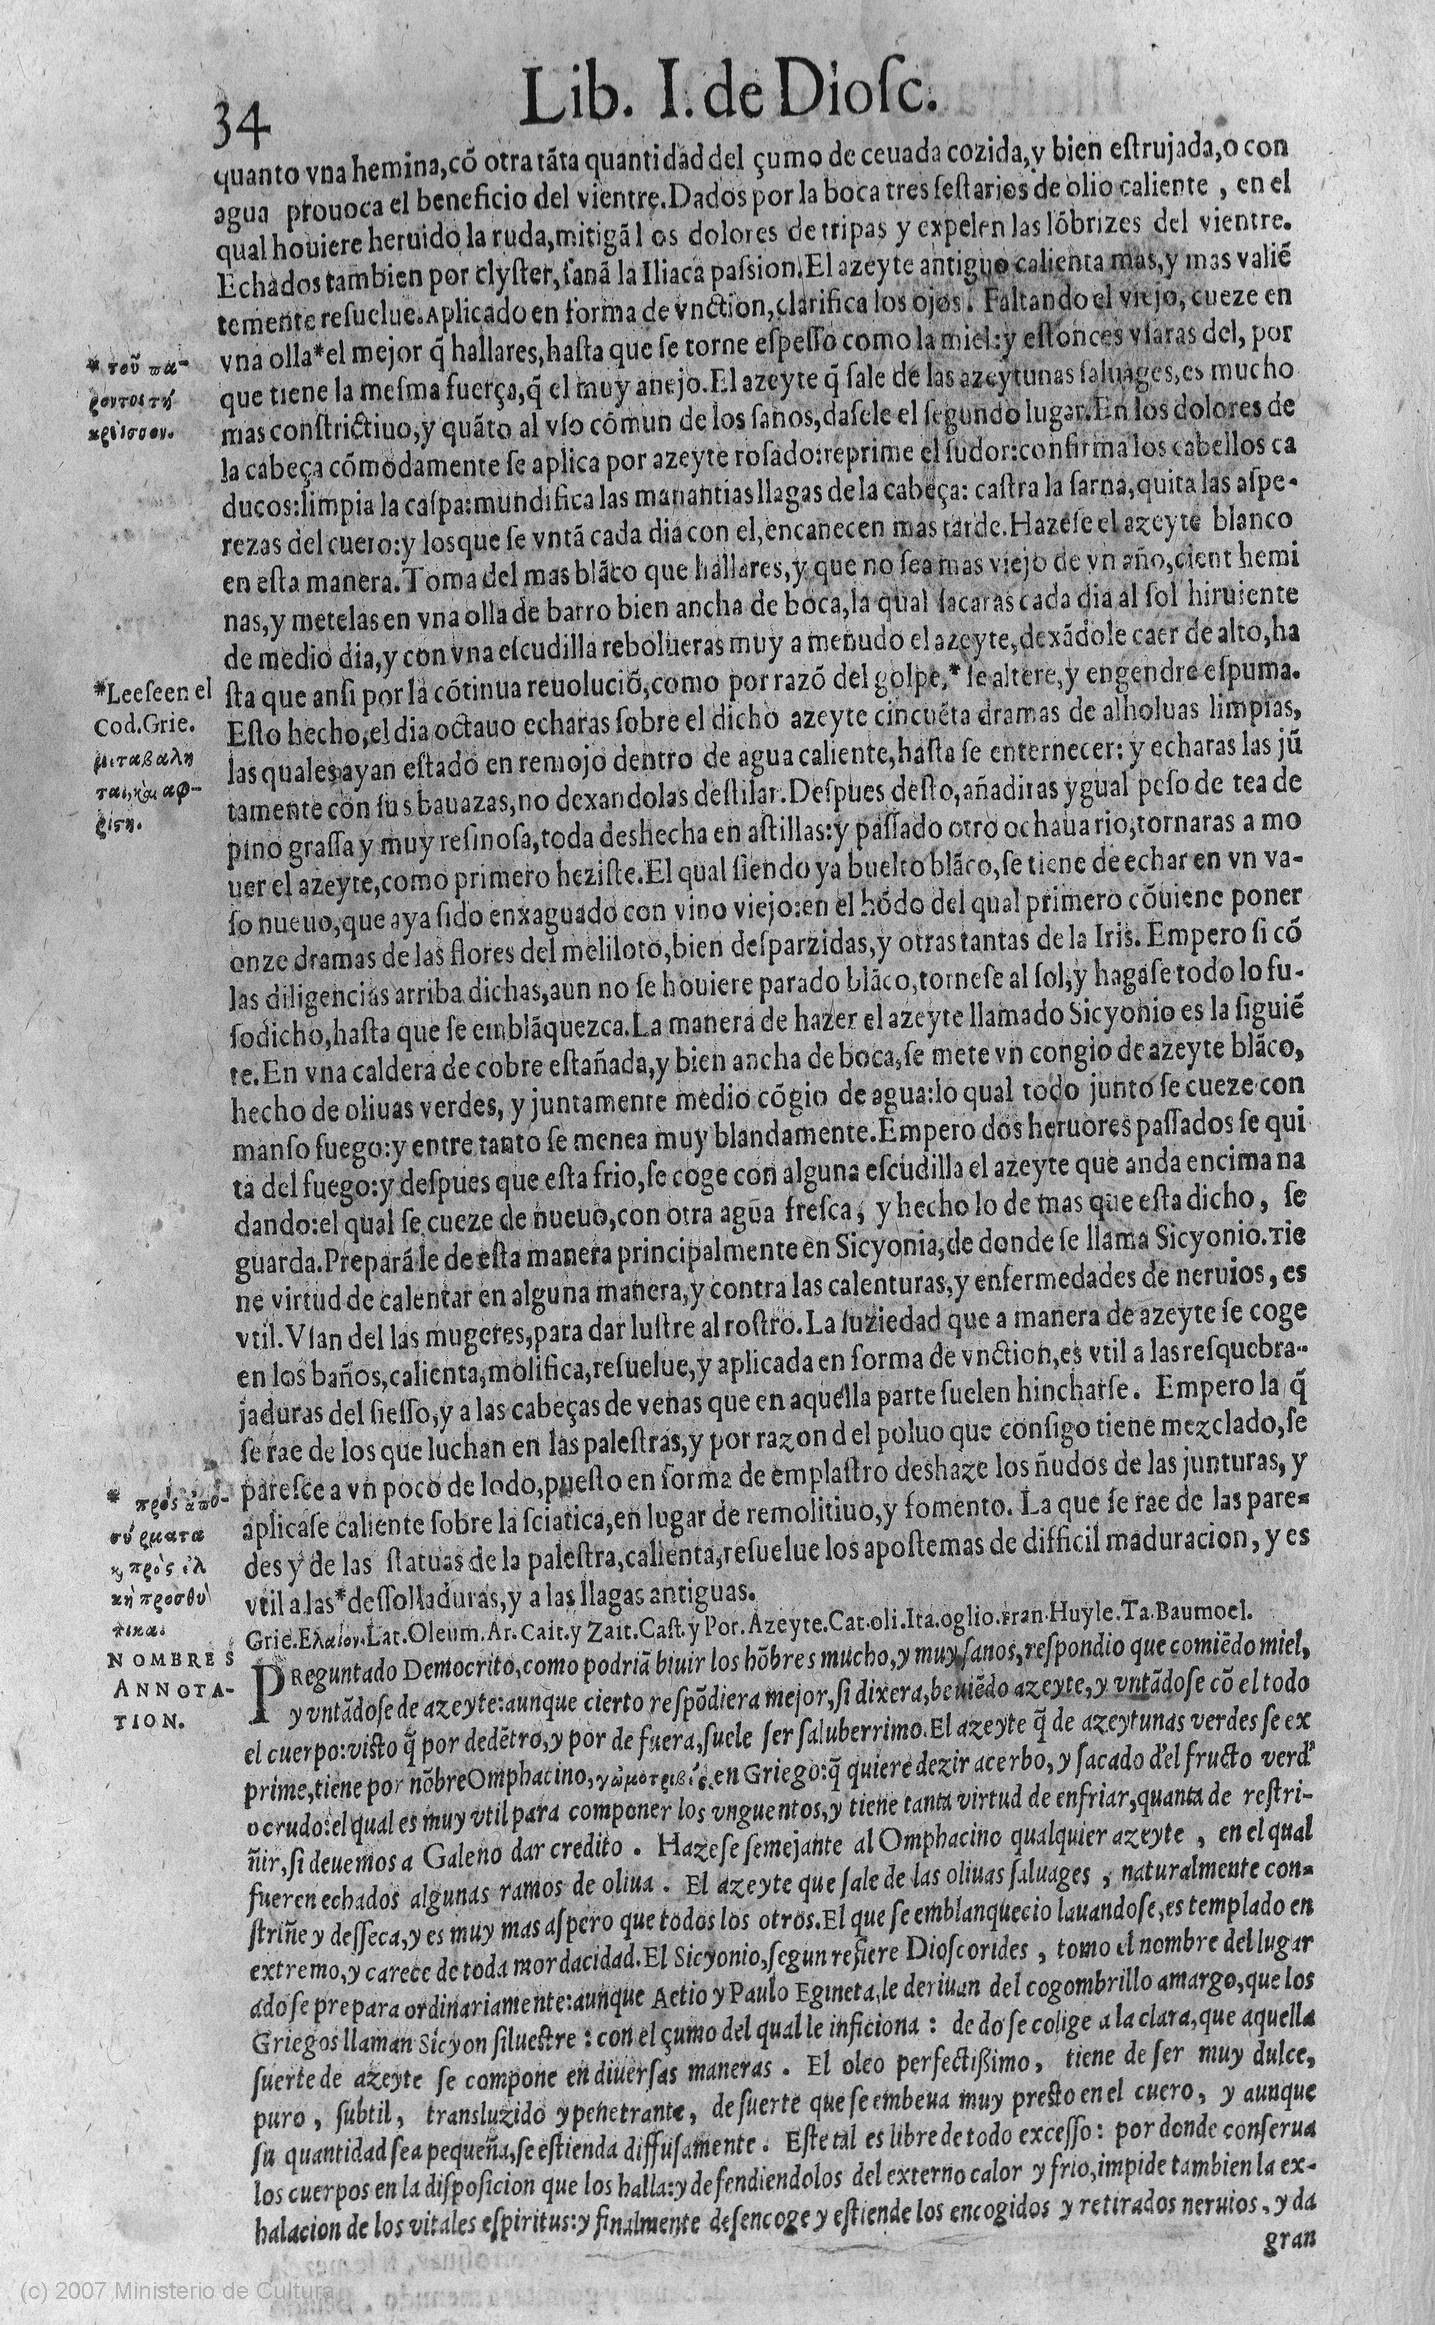 34
Lib. I. de Diosc.
quanto vna hemina,cõ otra tãta quantidad del çumo de ceuada cozida,y bien estrujada,o con
agua prouoca el beneficio del vientre.Dados por la boca tres sestarios de olio caliente , en el
qual houiere heruido la ruda,mitigã l os dolores de tripas y expelen las lõbrizes del vientre.
Echados tambien por clyster,sanã la Iliaca passion.El azeyte antiguo calienta mas,y mas valiẽ
temente resuelue.Aplicado en forma de vnction,clarifica los ojos. Faltando el viejo, cueze en
vna olla*el mejor q̃ hallares,hasta que se torne espesso como la miel:y estonces vsaras del, por
que tiene la mesma fuerça,q̃ el muy anejo.El azeyte q̃ sale de las azeytunas saluages,es mucho
mas constrictiuo,y quãto al vso cõmun de los sanos,dasele el segundo lugar.En los dolores de
la cabeça cõmodamente se aplica por azeyte rosado:reprime el sudor:confirma los cabellos ca
ducos:limpia la caspa:mundifica las manantias llagas de la cabeça: castra la sarna,quita las aspe-
rezas del cuero:y los que se vntã cada dia con el,encanecen mas tarde.Hazese el azeyte blanco
en esta manera.Toma del mas blãco que hallares,y que no sea mas viejo de vn año,cient hemi
nas,y metelas en vna olla de barro bien ancha de boca,la qual sacaras cada dia al sol hiruiente
de medio dia,y con vna escudilla rebolueras muy a menudo el azeyte,dexãdole caer de alto,ha
sta que ansi por la cõtinua reuoluciõ,como por razõ del golpe,* se altere,y engendre espuma.
Esto hecho,el dia octauo echaras sobre el dicho azeyte cincuẽta dramas de alholuas limpias,
las quales ayan estado en remojo dentro de agua caliente,hasta se enternecer: y echaras las jũ
tamente con sus bauazas,no dexandolas destilar.Despues desto,añadiras ygual peso de tea de
pino grassa y muy resinosa,toda deshecha en astillas:y passado otro ochauario,tornaras a mo
uer el azeyte,como primero heziste.El qual siendo ya buelto blãco,se tiene de echar en vn va-
so nueuo,que aya sido enxaguado con vino viejo:en el hõdo del qual primero cõuiene poner
onze dramas de las flores del meliloto,bien desparzidas,y otras tantas de la Iris. Empero si cõ
las diligencias arriba dichas,aun no se houiere parado blãco,tornese al sol,y hagase todo lo su-
sodicho,hasta que se emblãquezca.La manera de hazer el azeyte llamado Sicyonio es la siguiẽ
te.En vna caldera de cobre estañada,y bien ancha de boca,se mete vn congio de azeyte blãco,
hecho de oliuas verdes, y juntamente medio cõgio de agua:lo qual todo junto se cueze con
manso fuego:y entre tanto se menea muy blandamente.Empero dos heruores passados se qui
ta del fuego:y despues que esta frio,se coge con alguna escudilla el azeyte que anda encima na
dando:el qual se cueze de nueuo,con otra agua fresca, y hecho lo de mas que esta dicho, se
guarda.Preparã le de esta manera principalmente en Sicyonia,de donde se llama Sicyonio.Tie
ne virtud de calentar en alguna manera,y contra las calenturas,y enfermedades de neruios, es
vtil.Vsan del las mugeres,para dar lustre al rostro.La suziedad que a manera de azeyte se coge
en los baños,calienta,molifica,resuelue,y aplicada en forma de vnction,es vtil a las resquebra-
jaduras del siesso,y a las cabeças de venas que en aquella parte suelen hincharse. Empero la q̃
se rae de los que luchan en las palestras,y por razon d el poluo que consigo tiene mezclado,se
paresce a vn poco de lodo,puesto en forma de emplastro deshaze los ñudos de las junturas, y
aplicase caliente sobre la sciatica,en lugar de remolitiuo,y fomento. La que se rae de las pare-
des y de las statuas de la palestra,calienta,resuelue los apostemas de difficil maduracion, y es
vtil a las*dessolladuras,y a las llagas antiguas.
* τοῦ πα-
ροντος τὴ
κρεῖσσον.
*Leese en el
Cod.Grie.
μεταβαλη
ται,καὶ αφ-
ρίση.
* πρὸς ἀπο-
σύρματα
ϗ πρὸς ἑλ
κὴ
NOMBRES
Grie.Ελαίον.Lat.Oleum.Ar.Cait.y Zait.Cast.y Por.Azeyte.Cat.oli.Ita.oglio.Fran.Huyle.Ta.Baumoel.
ANNOTA-
TION.
PReguntado Democrito,como podriã biuir los hõbres mucho,y muy sanos,respondio que comiẽdo miel,
y vntãdose de azeyte:aunque cierto respõdiera mejor,si dixera,beuiẽdo azeyte,y vntãdose cõ el todo
el cuerpo:visto q̃ por dedẽtro,y por de fuera,suele ser saluberrimo.El azeyte q̃ de azeytunas verdes se ex
prime,tiene por nõbre Omphacino, en Griego:q̃ quiere dezir acerbo, y sacado d'el fructo verd'
o crudo:el qual es muy vtil para componer los vnguentos,y tiene tanta virtud de enfriar,quanta de restri-
ñir,si deuemos a Galeno dar credito . Hazese semejante al Omphacino qualquier azeyte , en el qual
fueren echados algunas ramos de oliua . El azeyte que sale de las oliuas saluages , naturalmente con-
striñe y desseca,y es muy mas aspero que todos los otros.El que se emblanquecio lauandose,es templado en
extremo,y carece de toda mordacidad.El Sicyonio,segun refiere Dioscorides , tomo el nombre del lugar
ado se prepara ordinariamente:aunque Aetio y Paulo Egineta,le deriuan del cogombrillo amargo,que los
Griegos llaman Sicyon siluestre : con el çumo del qual le inficiona : de do se colige a la clara,que aquella
suerte de azeyte se compone en diuersas maneras . El oleo perfectissimo, tiene de ser muy dulce,
puro , subtil, transluzido y penetrante, de suerte que se embeua muy presto en el cuero, y aunque
su quantidad sea pequeña,se estienda diffusamente. Este tal es libre de todo excesso: por donde conserua
los cuerpos en la disposicion que los halla:y defendiendolos del externo calor y frio,impide tambien la ex-
halacion de los vitales espiritus:y finalmente desencoge y estiende los encogidos y retirados neruios, y da
gran
(c) 2007 Ministerio de Cultura